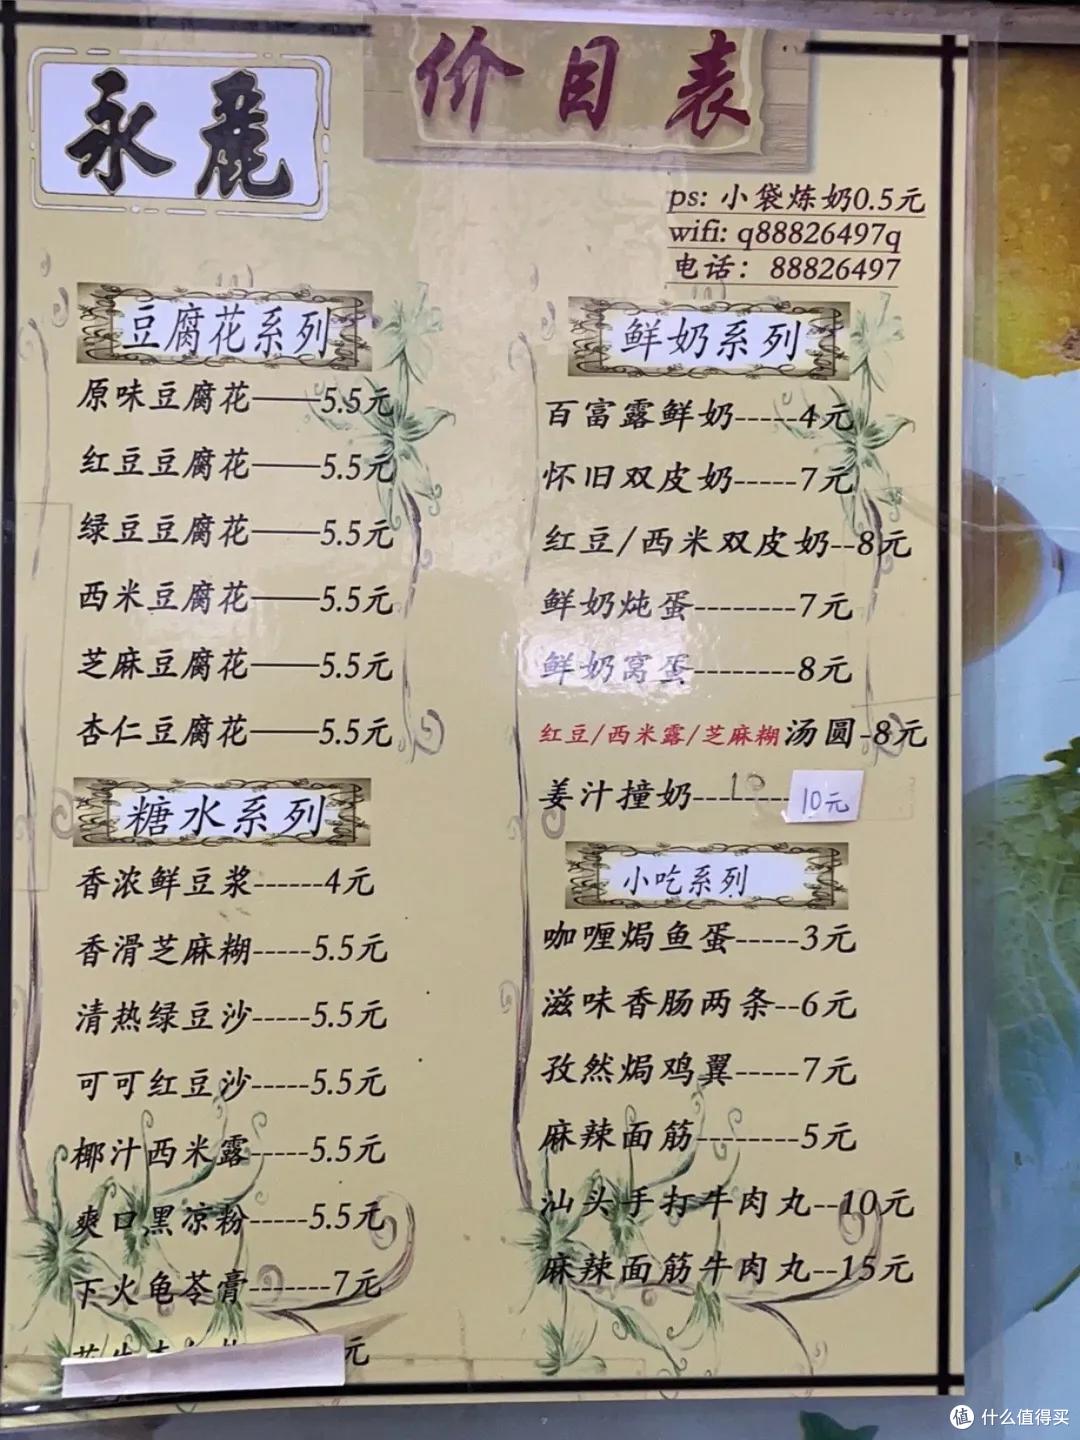 永麗
价目表
ps: 小袋炼奶0.5元
wifi: q88826497q
电话：88826497
豆腐花系列
原味豆腐花——5.5元
红豆豆腐花——5.5元
绿豆豆腐花——5.5元
西米豆腐花——5.5元
芝麻豆腐花——5.5元
杏仁豆腐花——5.5元
糖水系列
香浓鲜豆浆------4元
香滑芝麻糊-----5.5元
清热绿豆沙-----5.5元
可可红豆沙-----5.5元
椰汁西米露-----5.5元
爽口黑凉粉-----5.5元
下火龟苓膏-------7元
元
鲜奶系列
百富露鲜奶-----4元
怀旧双皮奶-----7元
红豆/西米双皮奶--8元
鲜奶炖蛋--------7元
鲜奶窝蛋--------8元
红豆/西米露/芝麻糊汤圆-8元
姜汁撞奶---10----10元
小吃系列
咖喱焗鱼蛋-----3元
滋味香肠两条--6元
孜然焗鸡翼-----7元
麻辣面筋--------5元
汕头手打牛肉丸--10元
麻辣面筋牛肉丸--15元
值 什么值得买